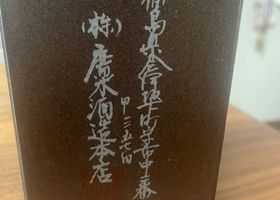 福島県会津坂下町字市中二番
甲三五七四
(株)廣木酒造本店